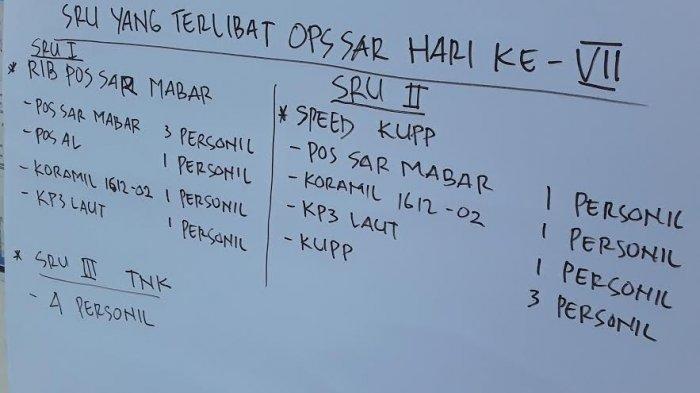 SRU YANG TERLIBAT OPS SAR HARI KE - VII
SRU I
* RIB POS SAR MABAR
- POS SAR MABAR 3 PERSONIL
- POS AL 1 PERSONIL
- KORAMIL 1612-02 1 PERSONIL
- KP3 LAUT 1 PERSONIL
* SRU III TNK
- 4 PERSONIL
SRU II
* SPEED KUPP
- POS SAR MABAR 1 PERSONIL
- KORAMIL 1612-02 1 PERSONIL
- KP3 LAUT 1 PERSONIL
- KUPP 3 PERSONIL